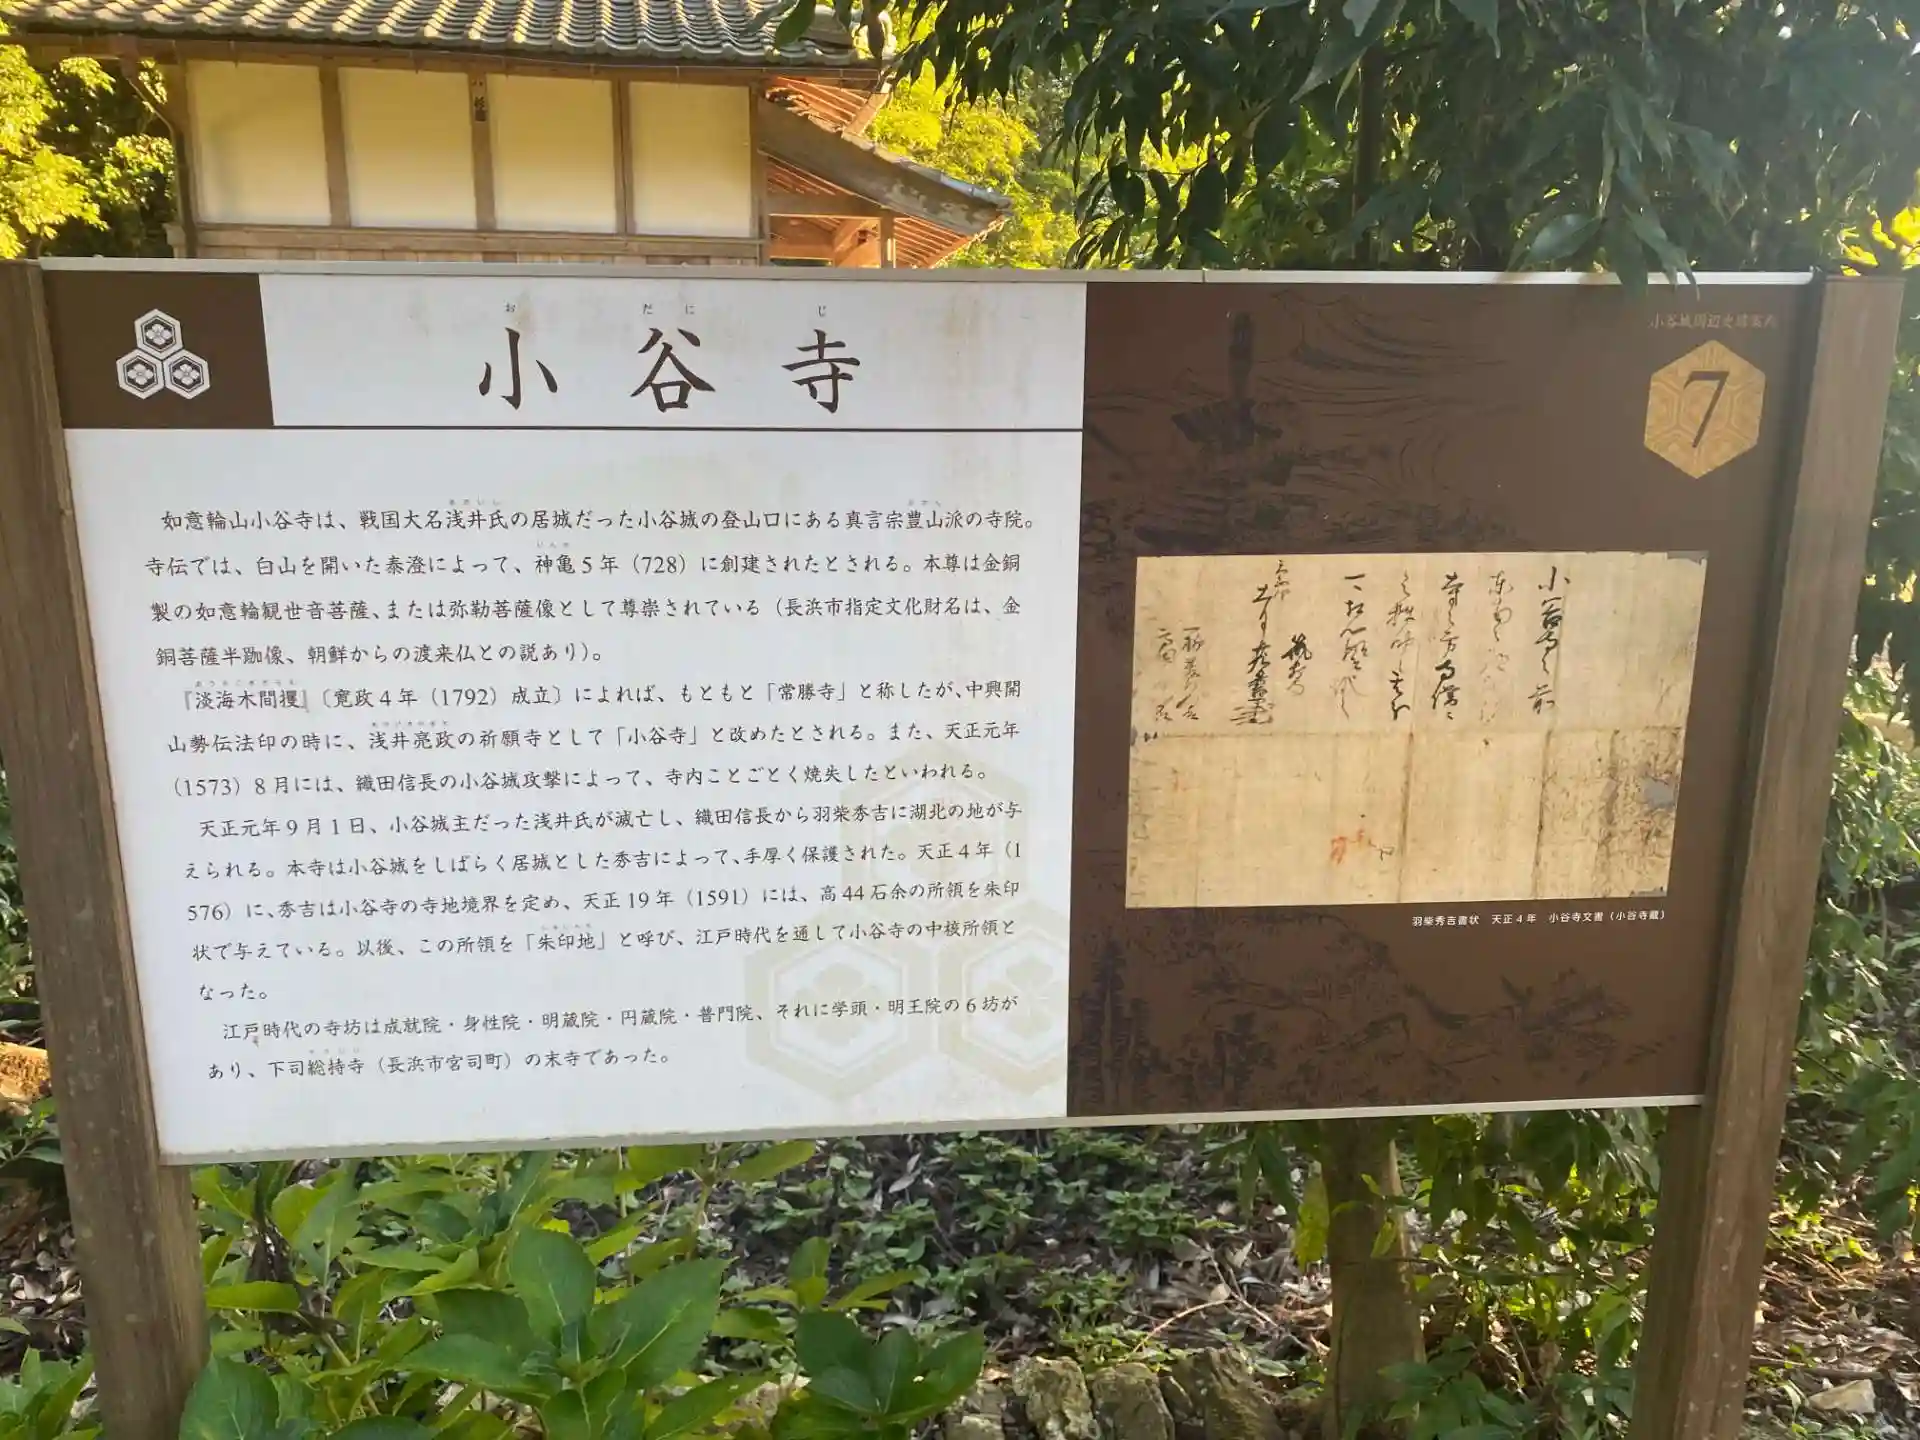 おだにじ
小谷寺
小谷城周辺史跡案内
7
如意輪山小谷寺は、戦国大名浅井氏の居城だった小谷城の登山口にある真言宗豊山派の寺院。
寺伝では、白山を開いた泰澄によって、神亀5年（728）に創建されたとされる。本尊は金銅
製の如意輪観世音菩薩、または弥勒菩薩像として尊崇されている（長浜市指定文化財名は、金
銅菩薩半跏像、朝鮮からの渡来仏との説あり）。
『淡海木間攫』〔寛政4年（1792）成立〕によれば、もともと「常勝寺」と称したが、中興開
山勢伝法印の時に、浅井亮政の祈願寺として「小谷寺」と改めたとされる。また、天正元年
（1573）8月には、織田信長の小谷城攻撃によって、寺内ことごとく焼失したといわれる。
天正元年9月1日、小谷城主だった浅井氏が滅亡し、織田信長から羽柴秀吉に湖北の地が与
えられる。本寺は小谷城をしばらく居城とした秀吉によって、手厚く保護された。天正4年（1
576）に、秀吉は小谷寺の寺地境界を定め、天正19年（1591）には、高44石余の所領を朱印
状で与えている。以後、この所領を「朱印地」と呼び、江戸時代を通して小谷寺の中核所領と
なった。
江戸時代の寺坊は成就院・身性院・明蔵院・円蔵院・普門院、それに学頭・明王院の6坊が
あり、下司総持寺（長浜市宮司町）の末寺であった。
羽柴秀吉書状　天正4年　小谷寺文書（小谷寺蔵）